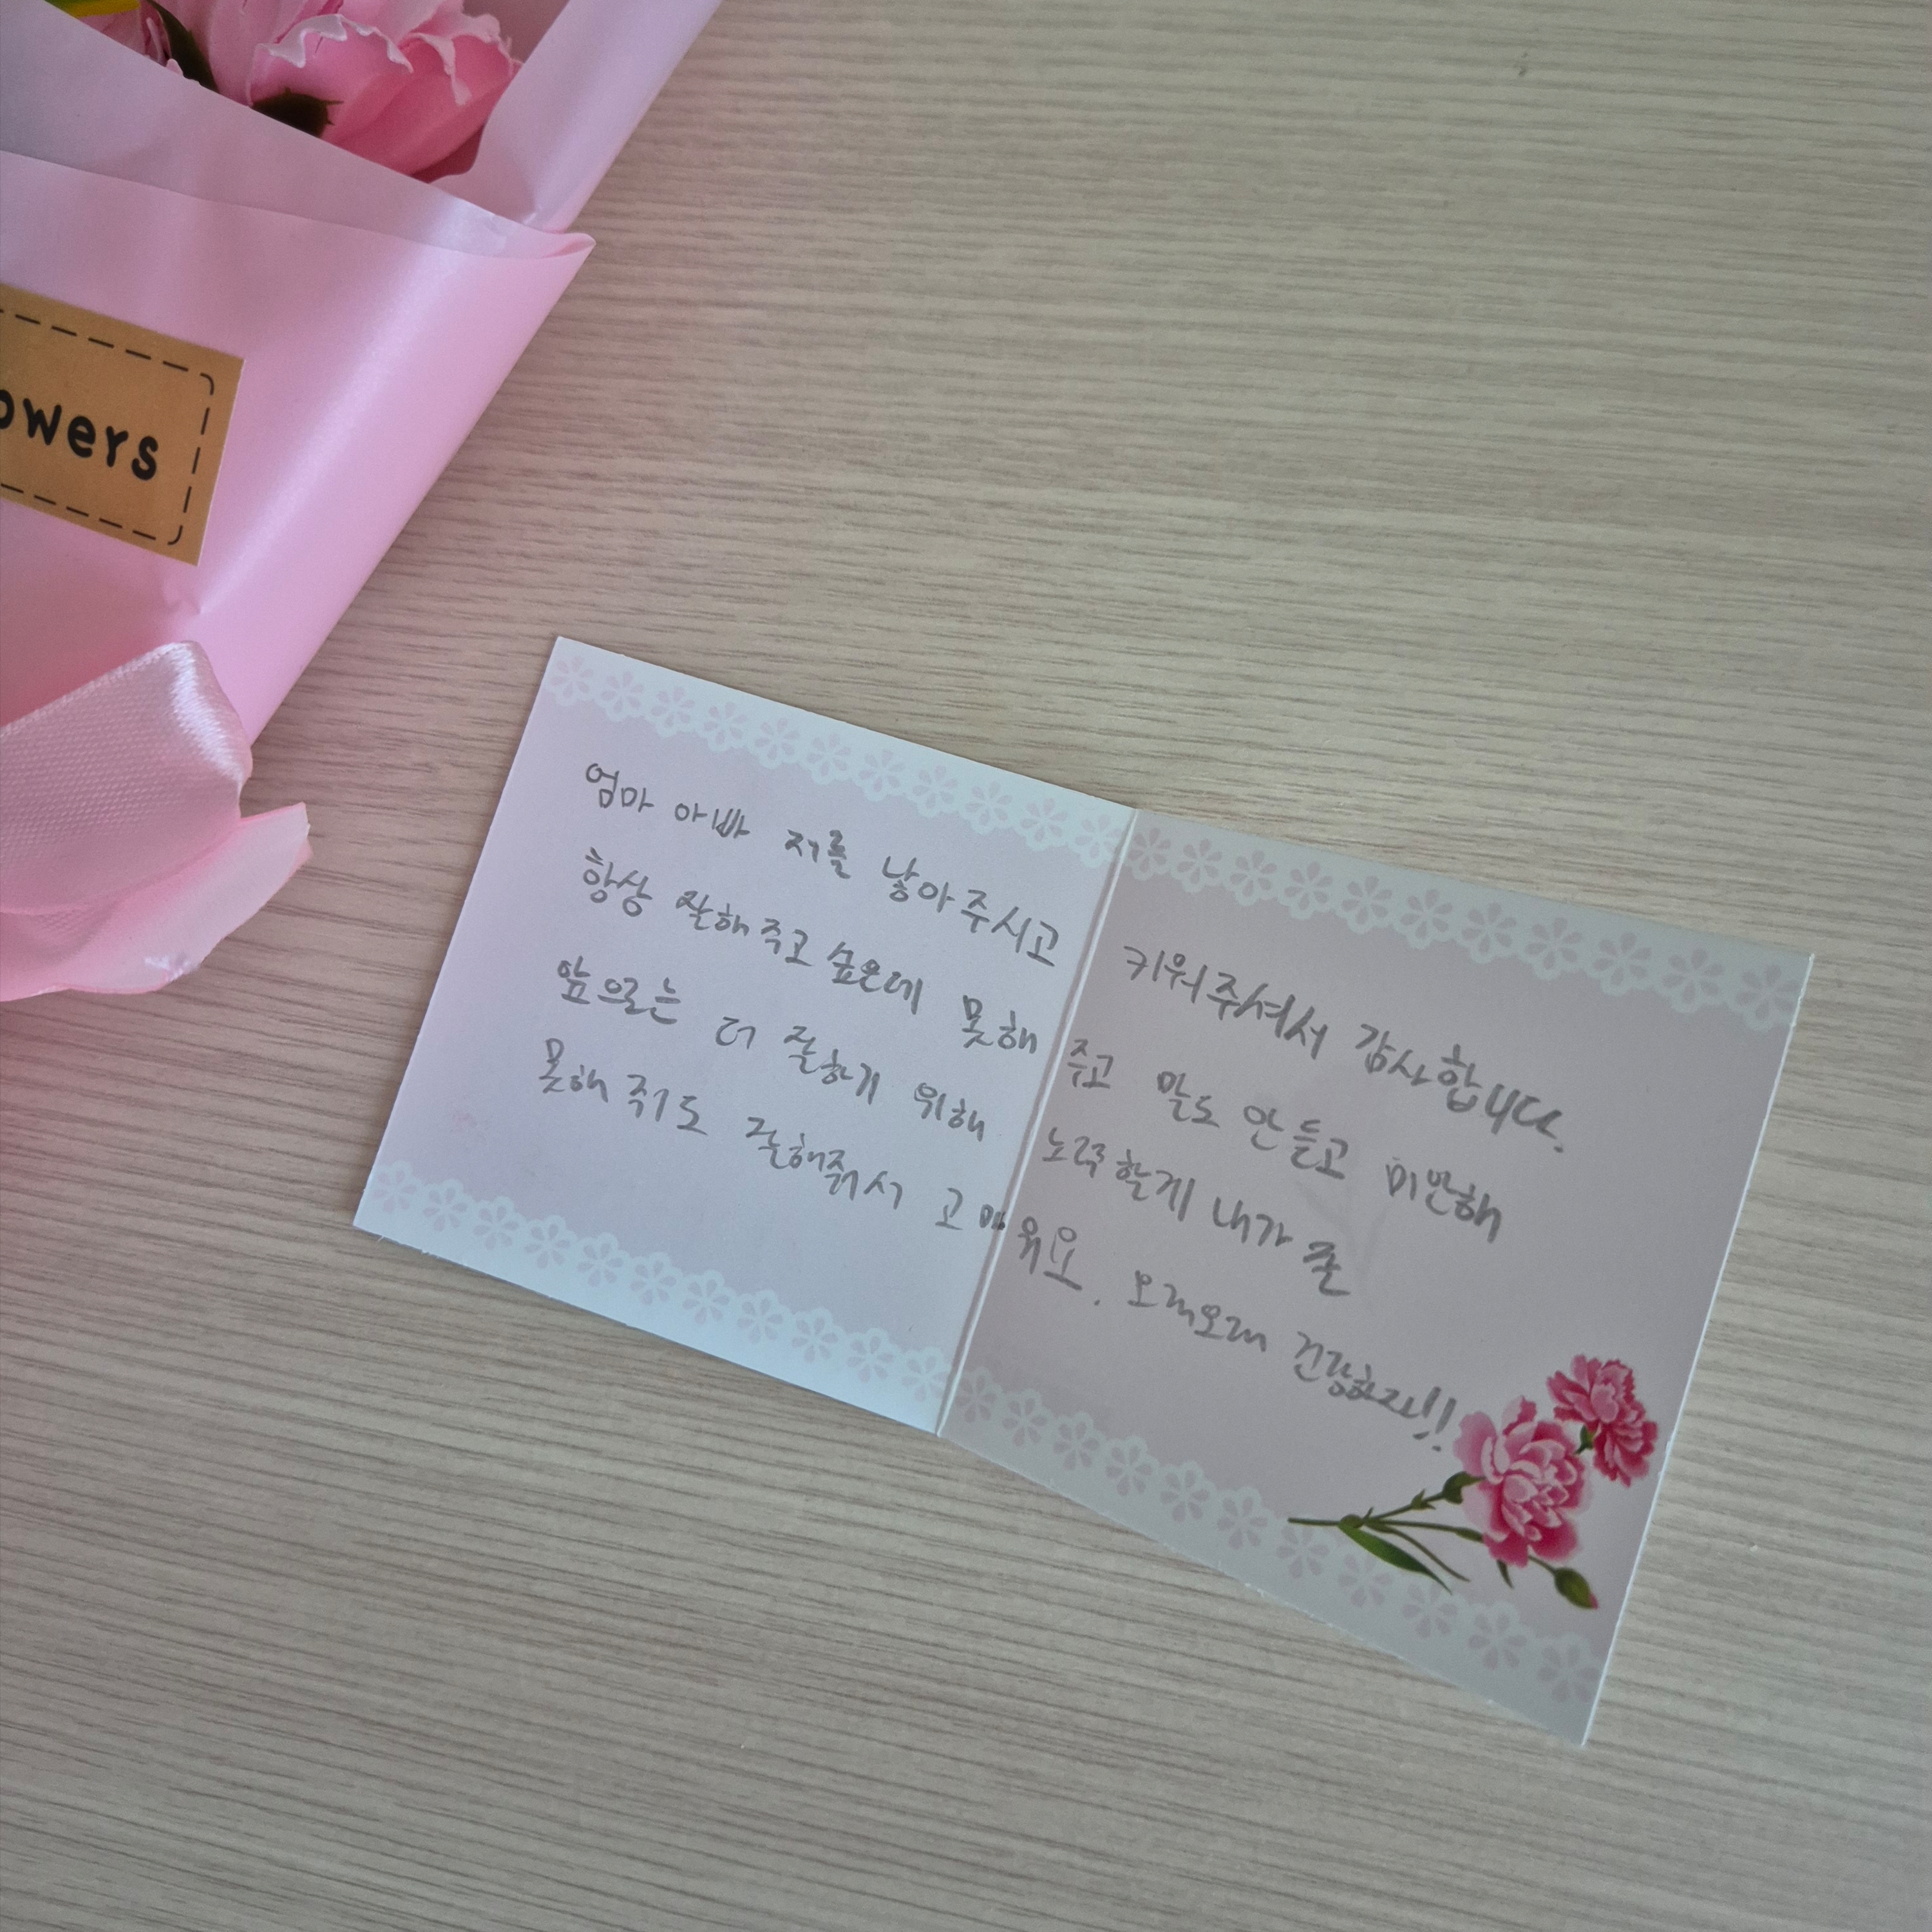 owers
엄마 아빠 저를 낳아주시고 키워주셔서 감사합니다.
항상 잘해주고 싶은데 못해주고 말도 안 듣고 미안해
앞으로는 더 잘하기 위해 노력할게 내가
못해줘도 잘해줘서 고마워요. 오래오래 건강하자!!